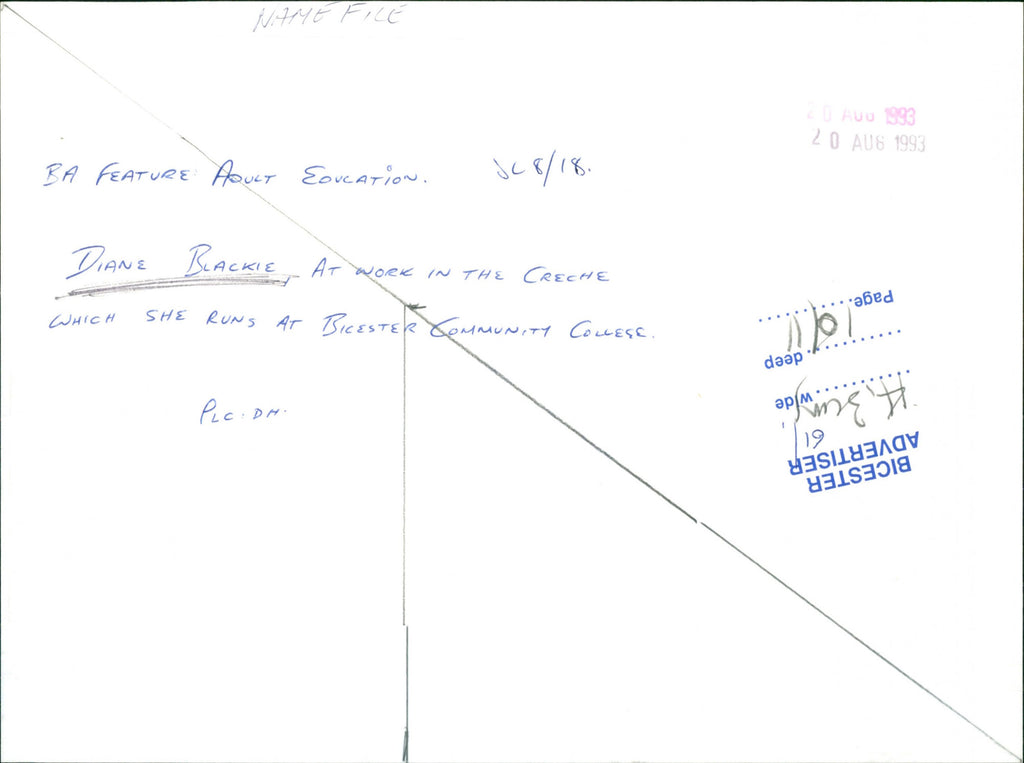 NAME FILE
20 AUG 1993
20 AUG 1993
BA FEATURE ADULT EDUCATION. JL 8/18.
DIANE BLACKIE AT WORK IN THE CRECHE
WHICH SHE RUNS AT BICESTER COMMUNITY COLLEGE.
PLC. DH.
BICESTER
ADVERTISER
61
wide
deep
Page